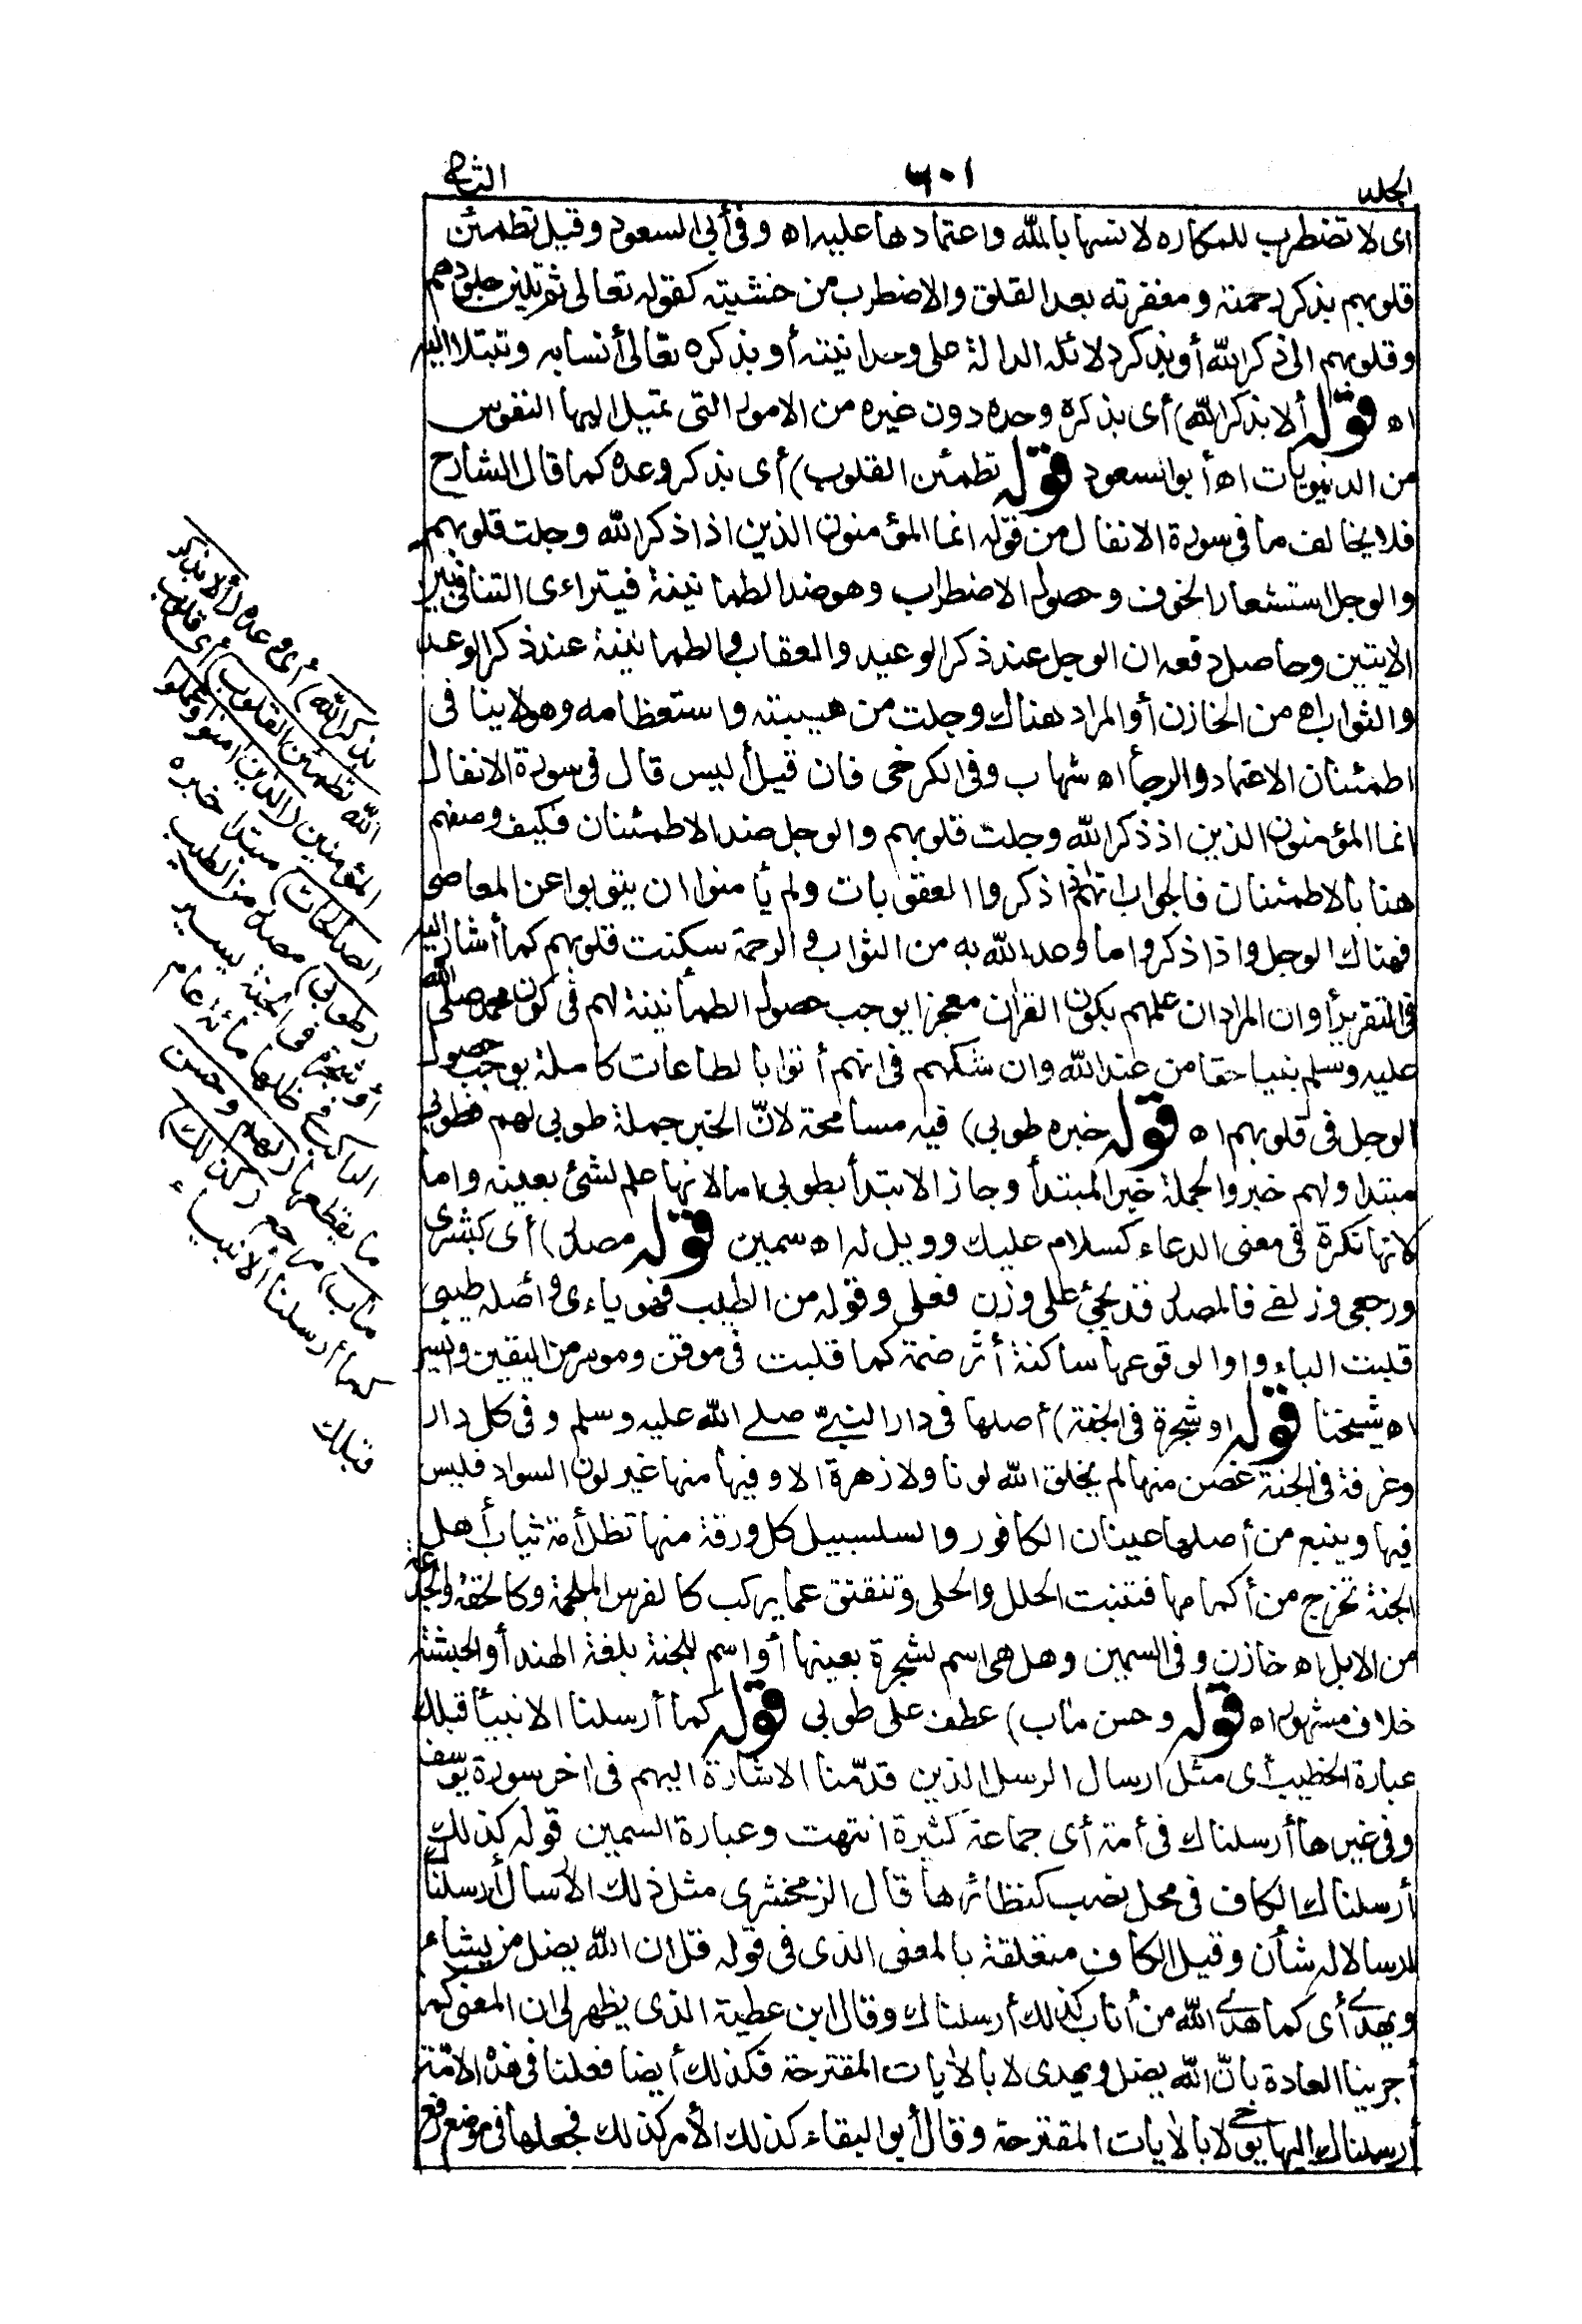 الجلد ٦٠١ الثانى
اى لا تضطرب للمكاره لانسها بالله واعتمادها عليه اه وفى أبى السعود وقيل تطمئن
قلوبهم بذكر رحمته ومغفرته بعد القلق والاضطراب من خشيته كقوله تعالى ثم تلين جلودهم
وقلوبهم الى ذكر الله أو بذكر دلائله الدالة على وحدانيته أو بذكره تعالى أنسا به وتبتلا اليه
اه قوله ألا بذكر الله) أى بذكره وحده دون غيره من الامور التى تميل اليها النفوس
من الدنيويات اه أبو السعود قوله تطمئن القلوب) أى بذكر وعده كما قال الشارح
فلا يخالف ما فى سورة الانفال من قوله انما المؤمنون الذين اذا ذكر الله وجلت قلوبهم
والوجل استشعار الخوف وحصول الاضطراب وهو ضد الطمانينة فيتراءى التنافى بين
الايتين وحاصل دفعه ان الوجل عند ذكر الوعيد والعقاب والطمانينة عند ذكر الوعد
والثواب اه من الخازن أو المراد هناك وجلت من هيبته واستعظامه وهو لا ينافى
اطمئنان الاعتماد والرجأ اه شهاب وفى الكرخى فان قيل أليس قال فى سورة الانفال
انما المؤمنون الذين اذ ذكر الله وجلت قلوبهم والوجل ضد الاطمئنان فكيف وصفهم
هنا بالاطمئنان فالجواب انهم اذ ذكروا العقوبات ولم يأمنوا ان يتوبوا عن المعاصى
فهناك الوجل واذا ذكروا ما وعد الله به من الثواب والرحمة سكنت قلوبهم كما أشار اليه
فى التقرير أو ان المراد ان علمهم بكون القران معجزا يوجب حصول الطمأنينة لهم فى كون محمد صلى الله
عليه وسلم نبيا حقا من عند الله وان شكهم فى انهم أتوا بالطاعات كاملة يوجب حصول
الوجل فى قلوبهم اه قوله خبره طوبى) فيه مسامحة لانّ الخبر جملة طوبى لهم فطوبى
مبتدا ولهم خبر والجملة خبر المبتدأ وجاز الابتدأ بطوبى اما لانها علم لشئ بعينه واما
لانها نكرة فى معنى الدعاء كسلام عليك وويل له اه سمين قوله مصدر) أى كبشرى
ورجعى وزلفى فالمصدر قد يجئ على وزن فعلى وقوله من الطيب فهو ياءى وأصله طيبى
قلبت الياء واوا لوقوعها ساكنة أثر ضمة كما قلبت فى موقن وموسر من اليقين واليسر
اه شيخنا قوله او شجرة فى الجنة) أصلها فى دار النبىّ صلى الله عليه وسلم وفى كل دار
وغرفة فى الجنة غصن منها لم يخلق الله لونا ولا زهرة الا وفيها منها غير لون السواد فليس
فيها وينبع من أصلها عينان الكافور والسلسبيل كل ورقة منها تظل أمة ثياب أهل
الجنة تخرج من أكمامها فتنبت الحلل والحلى وتنفتق عما يركب كالفرس الملجمة وكالحقة والجذعة
من الابل اه خازن وفى السمين وهل هى اسم لشجرة بعينها أو اسم للجنة بلغة الهند أو الحبشة
خلاف مشهور اه قوله وحسن ماب) عطف على طوبى قوله كما أرسلنا الانبيأ قبلك
عبارة الخطيب أى مثل ارسال الرسل الذين قدّمنا الاشارة اليهم فى اخر سورة يوسف
وفى غيرها أرسلناك فى أمة أى جماعة كثيرة انتهت وعبارة السمين قوله كذلك
أرسلناك الكاف فى محل نصب كنظائرها قال الزمخشرى مثل ذلك الارسال أرسلناك
ارسالا له شأن وقيل الكاف متعلقة بالمعنى الذى فى قوله قل ان الله يضل من يشاء
ويهدى أى كما هدى الله من أناب كذلك أرسلناك وقال ابن عطية الذى يظهر لى ان المعنى كما
أجرينا العادة بانّ الله يضل ويهدى لا بالايات المقترحة فكذلك أيضا فعلنا فى هذه الامّة
أرسلناك اليها بوحى لا بالايات المقترحة وقال أبو البقاء كذلك الأمر كذلك فجعلها فى موضع رفع
بذكر الله) أى وعده (ألا بذكر
الله تطمئن القلوب) أى قلوب
المؤمنين (الذين امنوا وعملوا
الصالحات) مبتدا خبره
(طوبى) مصدر من الطيب
أو شجرة فى الجنة يسير
الراكب فى ظلها مائة عام
ما يقطعها (لهم وحسن
مآب) مرجع (كذلك)
كما أرسلنا الانبياء
قبلك